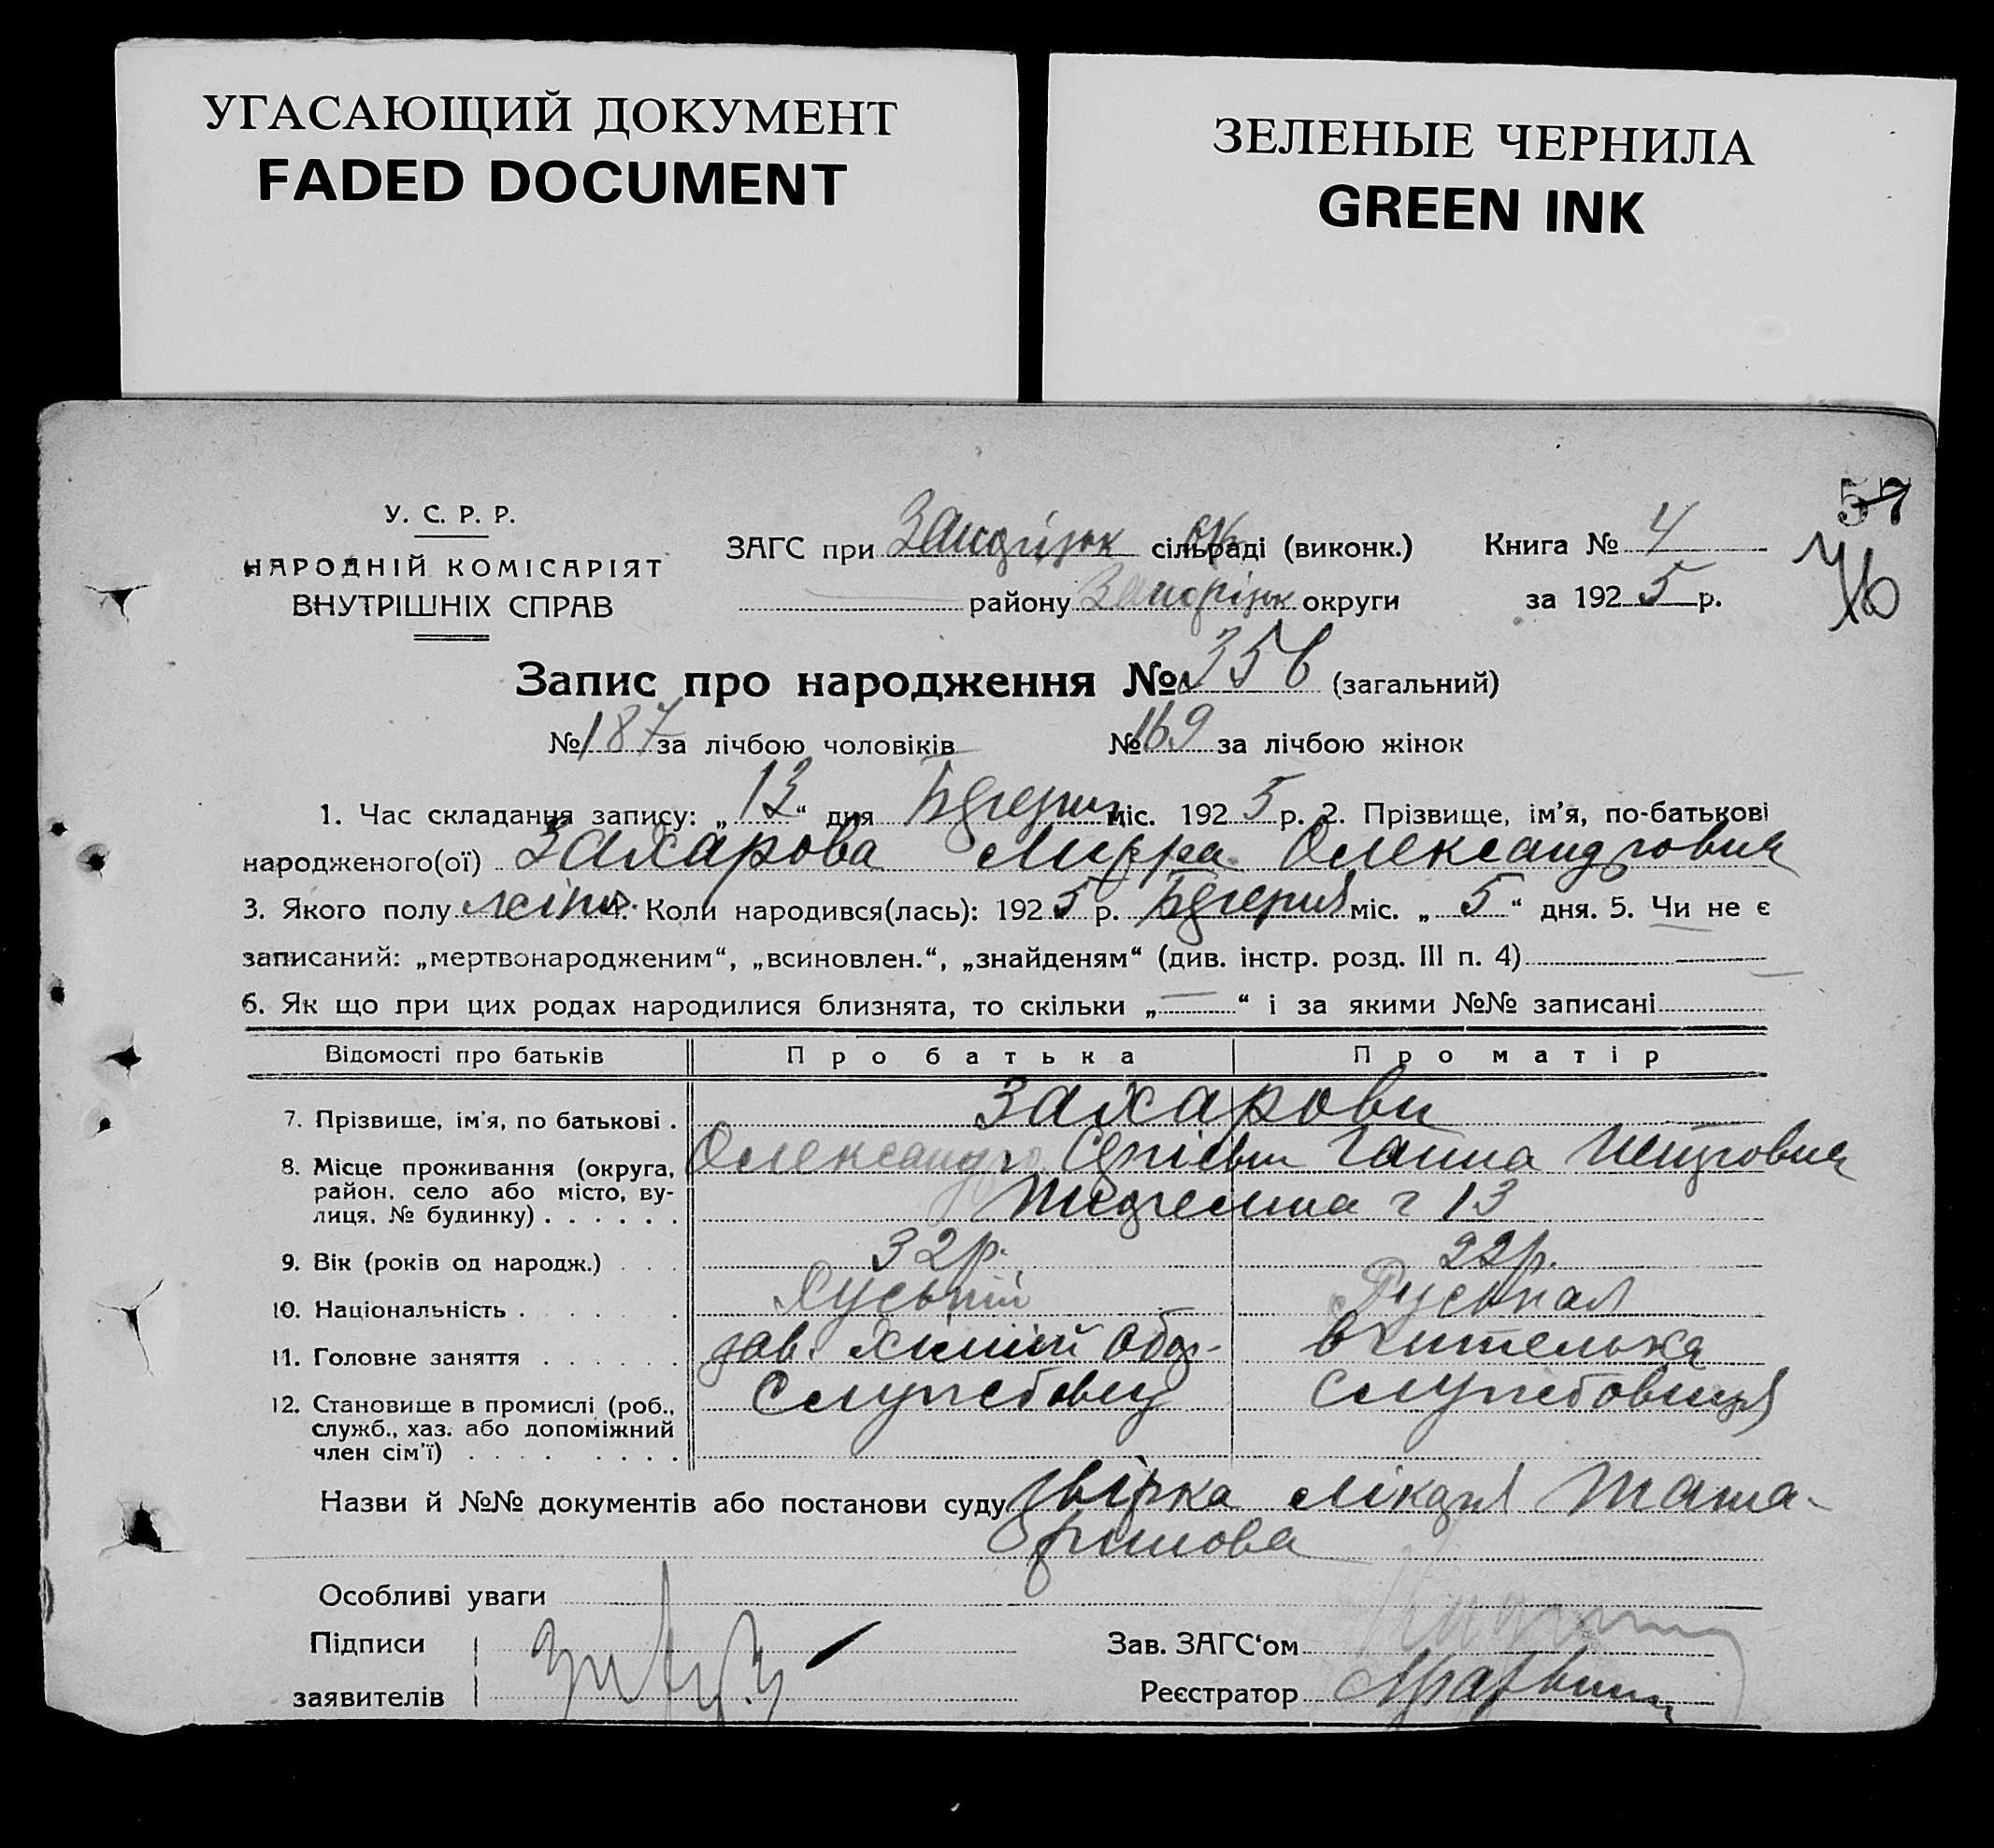 УГАСАЮЩИЙ ДОКУМЕНТ
FADED DOCUMENT
ЗЕЛЕНЫЕ ЧЕРНИЛА
GREEN INK
57
76
У. С. Р. Р.
НАРОДНІЙ КОМІСАРІЯТ
ВНУТРІШНІХ СПРАВ
ЗАГС при Запоріжск сільраді (виконк.)
району Запоріжск округи
Книга № 4
за 1925 р.
Запис про народження № 356 (загальний)
№ 187 за лічбою чоловіків № 169 за лічбою жінок
1. Час складання запису: „13“ дня міс. 1925 р. 2. Прізвище, ім'я, по-батькові
народженого(ої) Захарова Мирра Олександровна
3. Якого полу жіноч. 4. Коли народився(лась): 1925 р. міс. „5“ дня. 5. Чи не є
записаний: „мертвонародженим“, „всиновлен.“, „знайденям“ (див. інстр. розд. III п. 4)
6. Як що при цих родах народилися близнята, то скільки „—“ і за якими №№ записані
Відомості про батьків Про батька Про матір
7. Прізвище, ім'я, по батькові . Захарови
Олександр Сергієвич Ганна Петровна
8. Місце проживання (округа, район. село або місто, ву-
лиця. № будинку) . . . . . . 13
9. Вік (років од народж.) . . . 32 р. 22 р.
10. Національність . . . . . Руський Руськая
11. Головне заняття . . . . . . зав. вчителька
12. Становище в промислі (роб., Службовец Службовиця
служб., хаз. або допоміжний
член сім'ї) . . . . . . . .
Назви й №№ документів або постанови суду лікаря
Особливі уваги
Підписи
заявителів
Зав. ЗАГС‘ом
Реєстратор